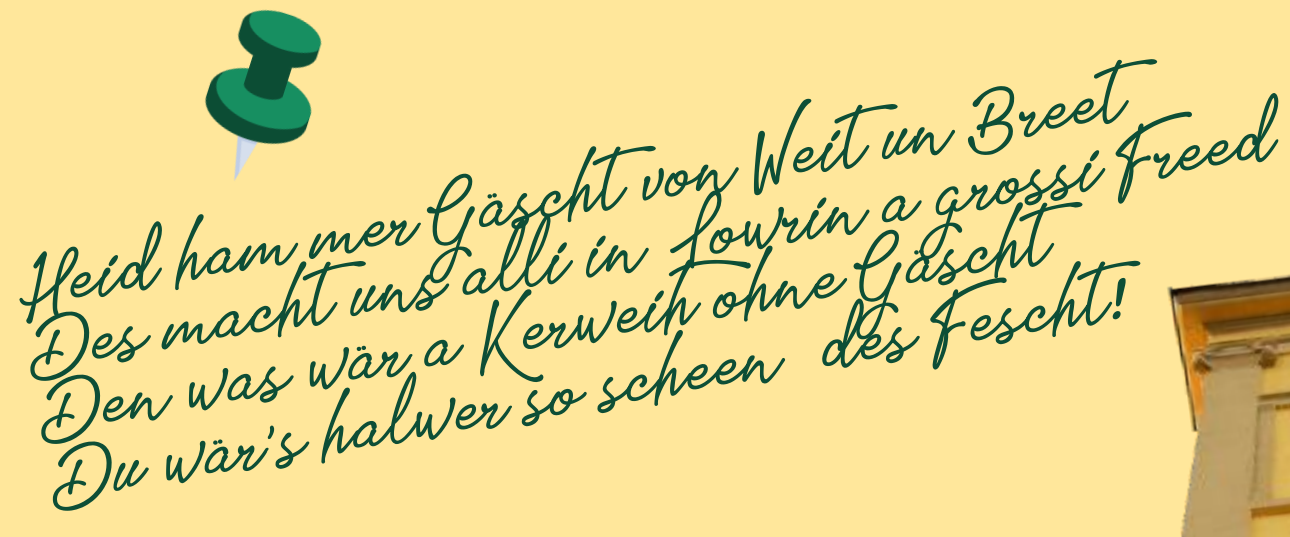 Heid ham mer Gäscht von Weit un Breet
Des macht uns alli in Lowrin a grossi Freed
Den was wär a Kerweih ohne Gäscht
Du wär's halwer so scheen des Fescht!